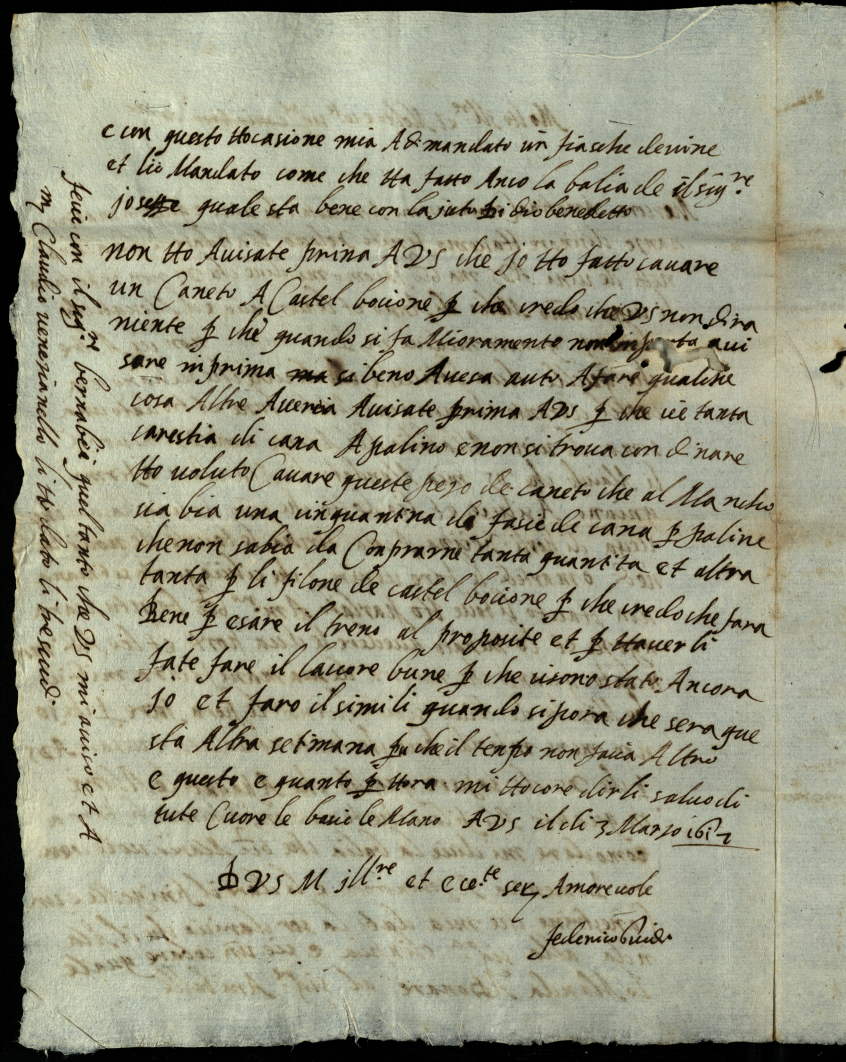 e con questo ttocasione mia Admandato un fiasche devine
et lio Mandato come che tta fatto Anco la balia de il sigre
josefe quale sta bene con la juto di dio benedetto
non tto Auisate prina A VS che jo tto fatto cauare
un Caneto A Castel bocione p che credo che VS non dira
niente p che quando si fa Mioramento non aui
sare inprima ma si beno Auesa auto A fare qualche
cosa Altre Aueria Auisate prima A VS p che cie tanta
carestia di cana Apalino e non si troua con dinare
tto uoluto Cauare queste pezo de caneto che al Mancho
cia bia una cinquantina di fasie de cana p paline
che non sabia da Conprarne tanta quantita et altra
tanta p li filone de castel bocione p che credo che fara
bene p esare il treno al proposite et p ttauerli
fate fare il lauore bune p che cisono stato Ancora
jo et faro il simili quando sipora che sera que
sta Altra setimana pu che il tenpo non facia Altro
e questo e quanto p ttora mi ttocore dirli saluo di
tute Cuore le bacio le Mano A VS il di 3 Marzo
D VS M jllre et ecete ser Amoreuole
federico
feci con il sigre bernabei quel tanto che VS mi auiso et A
m Claudio uenezianello li tto dato li tre scudi